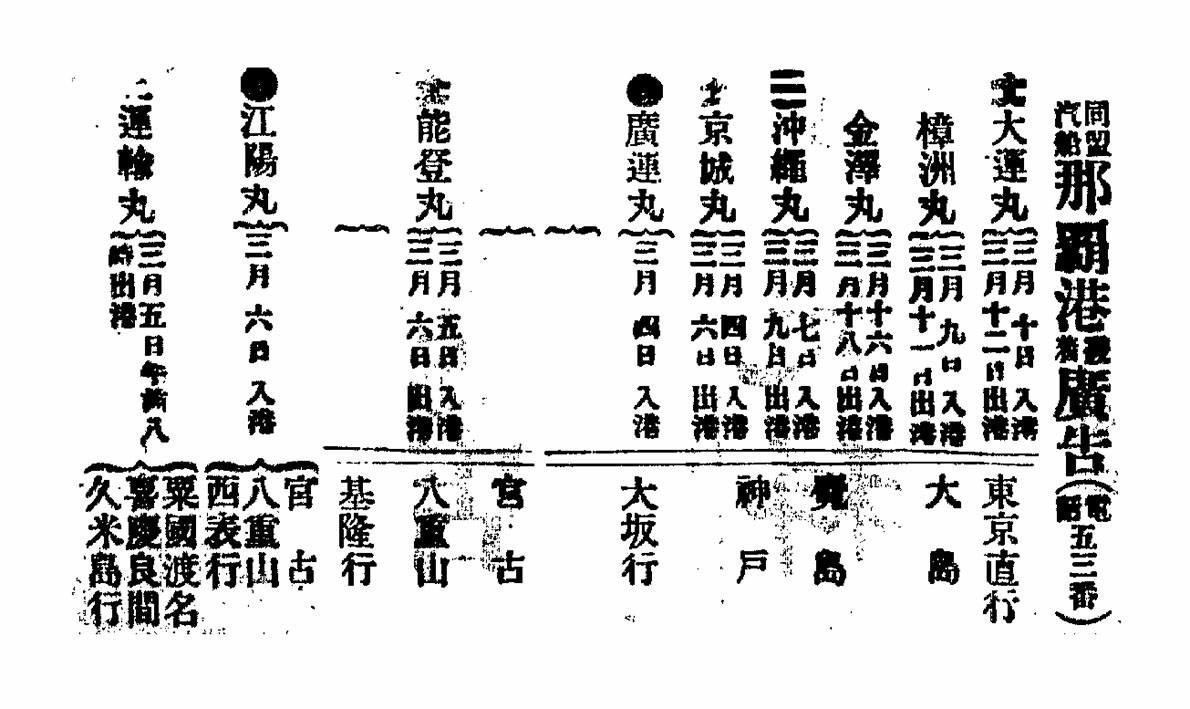 同盟汽船 那覇港發着廣告(電話五三番)
大運丸 三月十日入港 三月十二日出港
樟洲丸 三月九日入港 三月十一日出港
金澤丸 三月十六日入港 三月十八日出港
沖繩丸 三月七日入港 三月九日出港
京城丸 三月四日入港 三月六日出港
廣運丸 三月四日入港
東京直行
大島
島
神戸
大坂行
能登丸 三月五日入港 三月六日出港
宮古
八重山
基隆行
江陽丸 三月六日入港
宮古
八重山
西表行
運輸丸 三月五日午前八時出港
粟國渡名
喜慶良間
久米島行